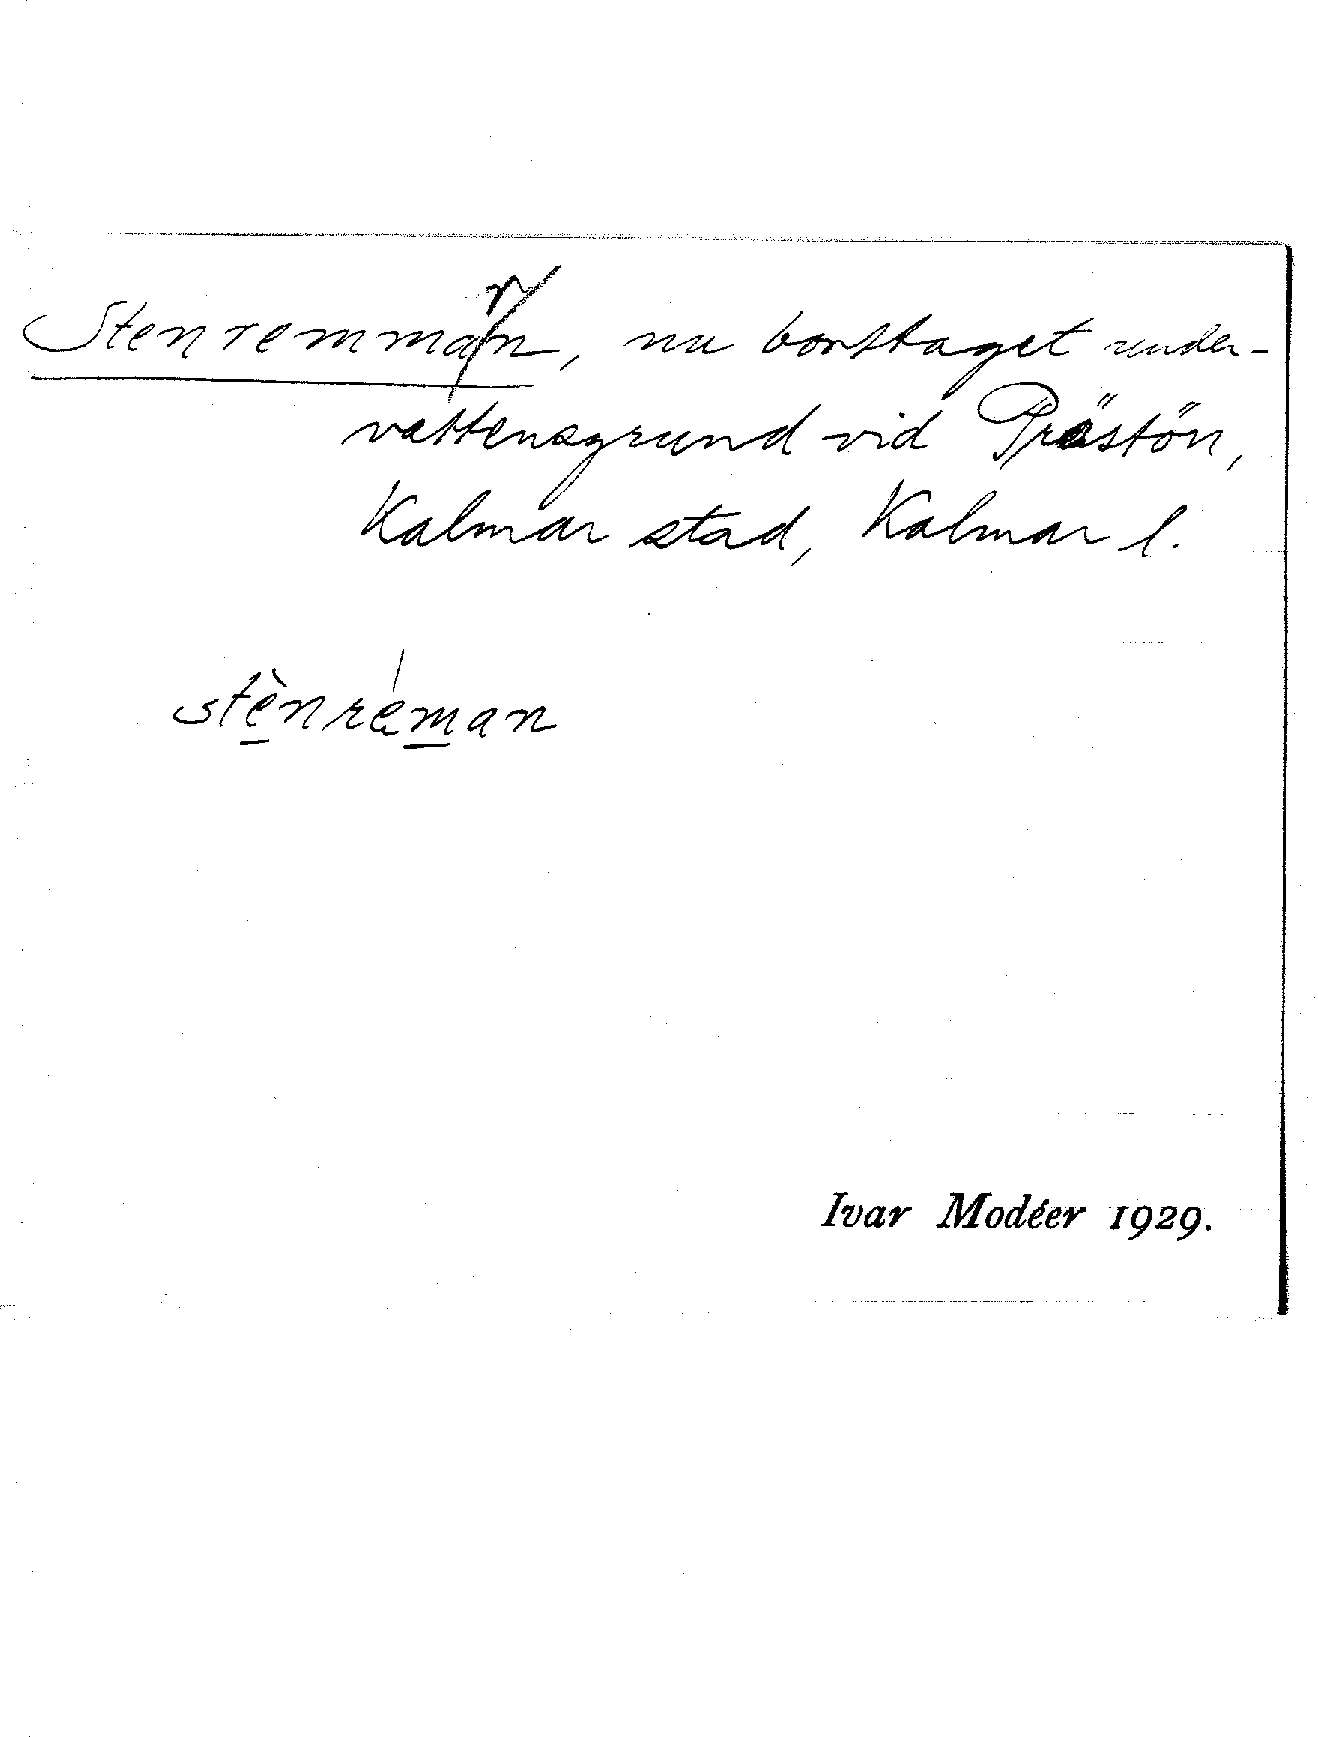 Stenremmarn, nu borttaget under-
vattensgrund vid Prästön,
Kalmar stad, Kalmar l.
stènréman
Ivar Modéer 1929.